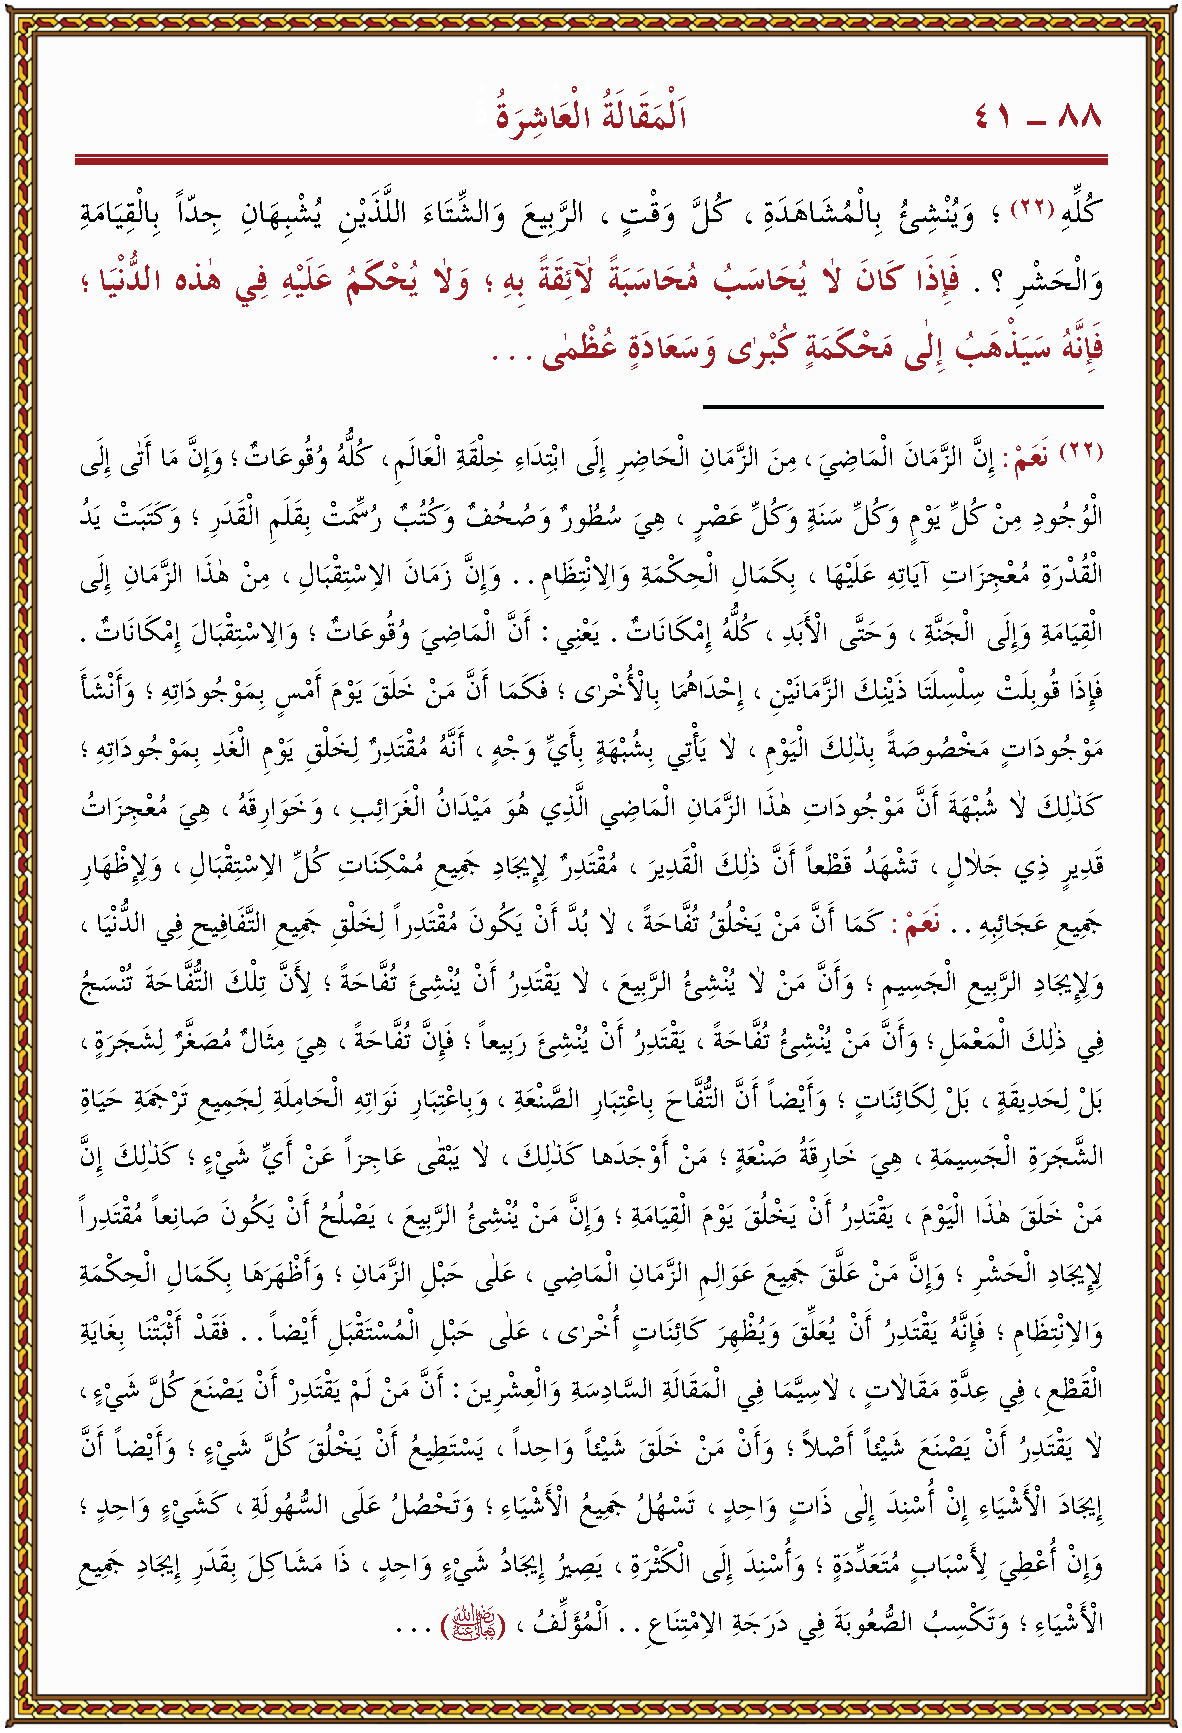 ٨٨ – ٤١ اَلْمَقَالَةُ الْعَاشِرَةُ
كُلِّهِ (٢٢) ؛ وَيُنْشِئُ بِالْمُشَاهَدَةِ ، كُلَّ وَقْتٍ ، الرَّبِيعَ وَالشِّتَاءَ اللَّذَيْنِ يُشْبِهَانِ جِدّاً بِالْقِيَامَةِ
وَالْحَشْرِ ؟ . فَإِذَا كَانَ لاٰ يُحَاسَبُ مُحَاسَبَةً لاٰئِقَةً بِهِ ؛ وَلاٰ يُحْكَمُ عَلَيْهِ فِي هٰذه الدُّنْيَا ؛
فَإِنَّهُ سَيَذْهَبُ إِلٰى مَحْكَمَةٍ كُبْرٰى وَسَعَادَةٍ عُظْمٰى . . .
(٢٢) نَعَمْ : إِنَّ الزَّمَانَ الْمَاضِيَ ، مِنَ الزَّمَانِ الْحَاضِرِ إِلَى ابْتِدَاءِ خِلْقَةِ الْعَالَمِ ، كُلُّهُ وُقُوعَاتٌ ؛ وَإِنَّ مَا أَتٰى إِلَى
الْوُجُودِ مِنْ كُلِّ يَوْمٍ وَكُلِّ سَنَةٍ وَكُلِّ عَصْرٍ ، هِيَ سُطُورٌ وَصُحُفٌ وَكُتُبٌ رُسِّمَتْ بِقَلَمِ الْقَدَرِ ؛ وَكَتَبَتْ يَدُ
الْقُدْرَةِ مُعْجِزَاتِ آيَاتِهِ عَلَيْهَا ، بِكَمَالِ الْحِكْمَةِ وَالاِنْتِظَامِ . . وَإِنَّ زَمَانَ الاِسْتِقْبَالِ ، مِنْ هٰذَا الزَّمَانِ إِلَى
الْقِيَامَةِ وَإِلَى الْجَنَّةِ ، وَحَتَّى الْأَبَدِ ، كُلُّهُ إِمْكَانَاتٌ . يَعْنِي : أَنَّ الْمَاضِيَ وُقُوعَاتٌ ؛ وَالاِسْتِقْبَالَ إِمْكَانَاتٌ .
فَإِذَا قُوبِلَتْ سِلْسِلَتَا ذَيْنِكَ الزَّمَانَيْنِ ، إِحْدَاهُمَا بِالْأُخْرٰى ؛ فَكَمَا أَنَّ مَنْ خَلَقَ يَوْمَ أَمْسٍ بِمَوْجُودَاتِهِ ؛ وَأَنْشَأَ
مَوْجُودَاتٍ مَخْصُوصَةً بِذٰلِكَ الْيَوْمِ ، لاٰ يَأْتِي بِشُبْهَةٍ بِأَيِّ وَجْهٍ ، أَنَّهُ مُقْتَدِرٌ لِخَلْقِ يَوْمِ الْغَدِ بِمَوْجُودَاتِهِ ؛
كَذٰلِكَ لاٰ شُبْهَةَ أَنَّ مَوْجُودَاتِ هٰذَا الزَّمَانِ الْمَاضِي الَّذِي هُوَ مَيْدَانُ الْغَرَائِبِ ، وَخَوَارِقَهُ ، هِيَ مُعْجِزَاتُ
قَدِيرٍ ذِي جَلاٰلٍ ، تَشْهَدُ قَطْعاً أَنَّ ذٰلِكَ الْقَدِيرَ ، مُقْتَدِرٌ لِإِيجَادِ جَمِيعِ مُمْكِنَاتِ كُلِّ الاِسْتِقْبَالِ ، وَلِإِظْهَارِ
جَمِيعِ عَجَائِبِهِ . . نَعَمْ : كَمَا أَنَّ مَنْ يَخْلُقُ تُفَّاحَةً ، لاٰ بُدَّ أَنْ يَكُونَ مُقْتَدِراً لِخَلْقِ جَمِيعِ التَّفَافِيحِ فِي الدُّنْيَا ،
وَلِإِيجَادِ الرَّبِيعِ الْجَسِيمِ ؛ وَأَنَّ مَنْ لاٰ يُنْشِئُ الرَّبِيعَ ، لاٰ يَقْتَدِرُ أَنْ يُنْشِئَ تُفَّاحَةً ؛ لِأَنَّ تِلْكَ التُّفَّاحَةَ تُنْسَجُ
فِي ذٰلِكَ الْمَعْمَلِ ؛ وَأَنَّ مَنْ يُنْشِئُ تُفَّاحَةً ، يَقْتَدِرُ أَنْ يُنْشِئَ رَبِيعاً ؛ فَإِنَّ تُفَّاحَةً ، هِيَ مِثَالٌ مُصَغَّرٌ لِشَجَرَةٍ ،
بَلْ لِحَدِيقَةٍ ، بَلْ لِكَائِنَاتٍ ؛ وَأَيْضاً أَنَّ التُّفَّاحَ بِاعْتِبَارِ الصَّنْعَةِ ، وَبِاعْتِبَارِ نَوَاتِهِ الْحَامِلَةِ لِجَمِيعِ تَرْجَمَةِ حَيَاةِ
الشَّجَرَةِ الْجَسِيمَةِ ، هِيَ خَارِقَةُ صَنْعَةٍ ؛ مَنْ أَوْجَدَهَا كَذٰلِكَ ، لاٰ يَبْقٰى عَاجِزاً عَنْ أَيِّ شَيْءٍ ؛ كَذٰلِكَ إِنَّ
مَنْ خَلَقَ هٰذَا الْيَوْمَ ، يَقْتَدِرُ أَنْ يَخْلُقَ يَوْمَ الْقِيَامَةِ ؛ وَإِنَّ مَنْ يُنْشِئُ الرَّبِيعَ ، يَصْلُحُ أَنْ يَكُونَ صَانِعاً مُقْتَدِراً
لِإِيجَادِ الْحَشْرِ ؛ وَإِنَّ مَنْ عَلَّقَ جَمِيعَ عَوَالِمِ الزَّمَانِ الْمَاضِي ، عَلٰى حَبْلِ الزَّمَانِ ؛ وَأَظْهَرَهَا بِكَمَالِ الْحِكْمَةِ
وَالاِنْتِظَامِ ؛ فَإِنَّهُ يَقْتَدِرُ أَنْ يُعَلِّقَ وَيُظْهِرَ كَائِنَاتٍ أُخْرٰى ، عَلٰى حَبْلِ الْمُسْتَقْبَلِ أَيْضاً . . فَقَدْ أَثْبَتْنَا بِغَايَةِ
الْقَطْعِ ، فِي عِدَّةِ مَقَالاٰتٍ ، لاٰسِيَّمَا فِي الْمَقَالَةِ السَّادِسَةِ وَالْعِشْرِينَ : أَنَّ مَنْ لَمْ يَقْدِرْ أَنْ يَصْنَعَ كُلَّ شَيْءٍ ،
لاٰ يَقْتَدِرُ أَنْ يَصْنَعَ شَيْئاً أَصْلاً ؛ وَأَنْ مَنْ خَلَقَ شَيْئاً وَاحِداً ، يَسْتَطِيعُ أَنْ يَخْلُقَ كُلَّ شَيْءٍ ؛ وَأَيْضاً أَنَّ
إِيجَادَ الْأَشْيَاءِ إِنْ أُسْنِدَ إِلٰى ذَاتٍ وَاحِدٍ ، تَسْهُلُ جَمِيعُ الْأَشْيَاءِ ؛ وَتَحْصُلُ عَلَى السُّهُولَةِ ، كَشَيْءٍ وَاحِدٍ ؛
وَإِنْ أُعْطِيَ لِأَسْبَابٍ مُتَعَدِّدَةٍ ؛ وَأُسْنِدَ إِلَى الْكَثْرَةِ ، يَصِيرُ إِيجَادُ شَيْءٍ وَاحِدٍ ، ذَا مَشَاكِلَ بِقَدَرِ إِيجَادِ جَمِيعِ
الْأَشْيَاءِ ؛ وَتَكْسِبُ الصُّعُوبَةَ فِي دَرَجَةِ الاِمْتِنَاعِ . . اَلْمُؤَلِّفُ ، (رَضِيَ اللهُ تَعَالٰى عَنْهُ) . . .